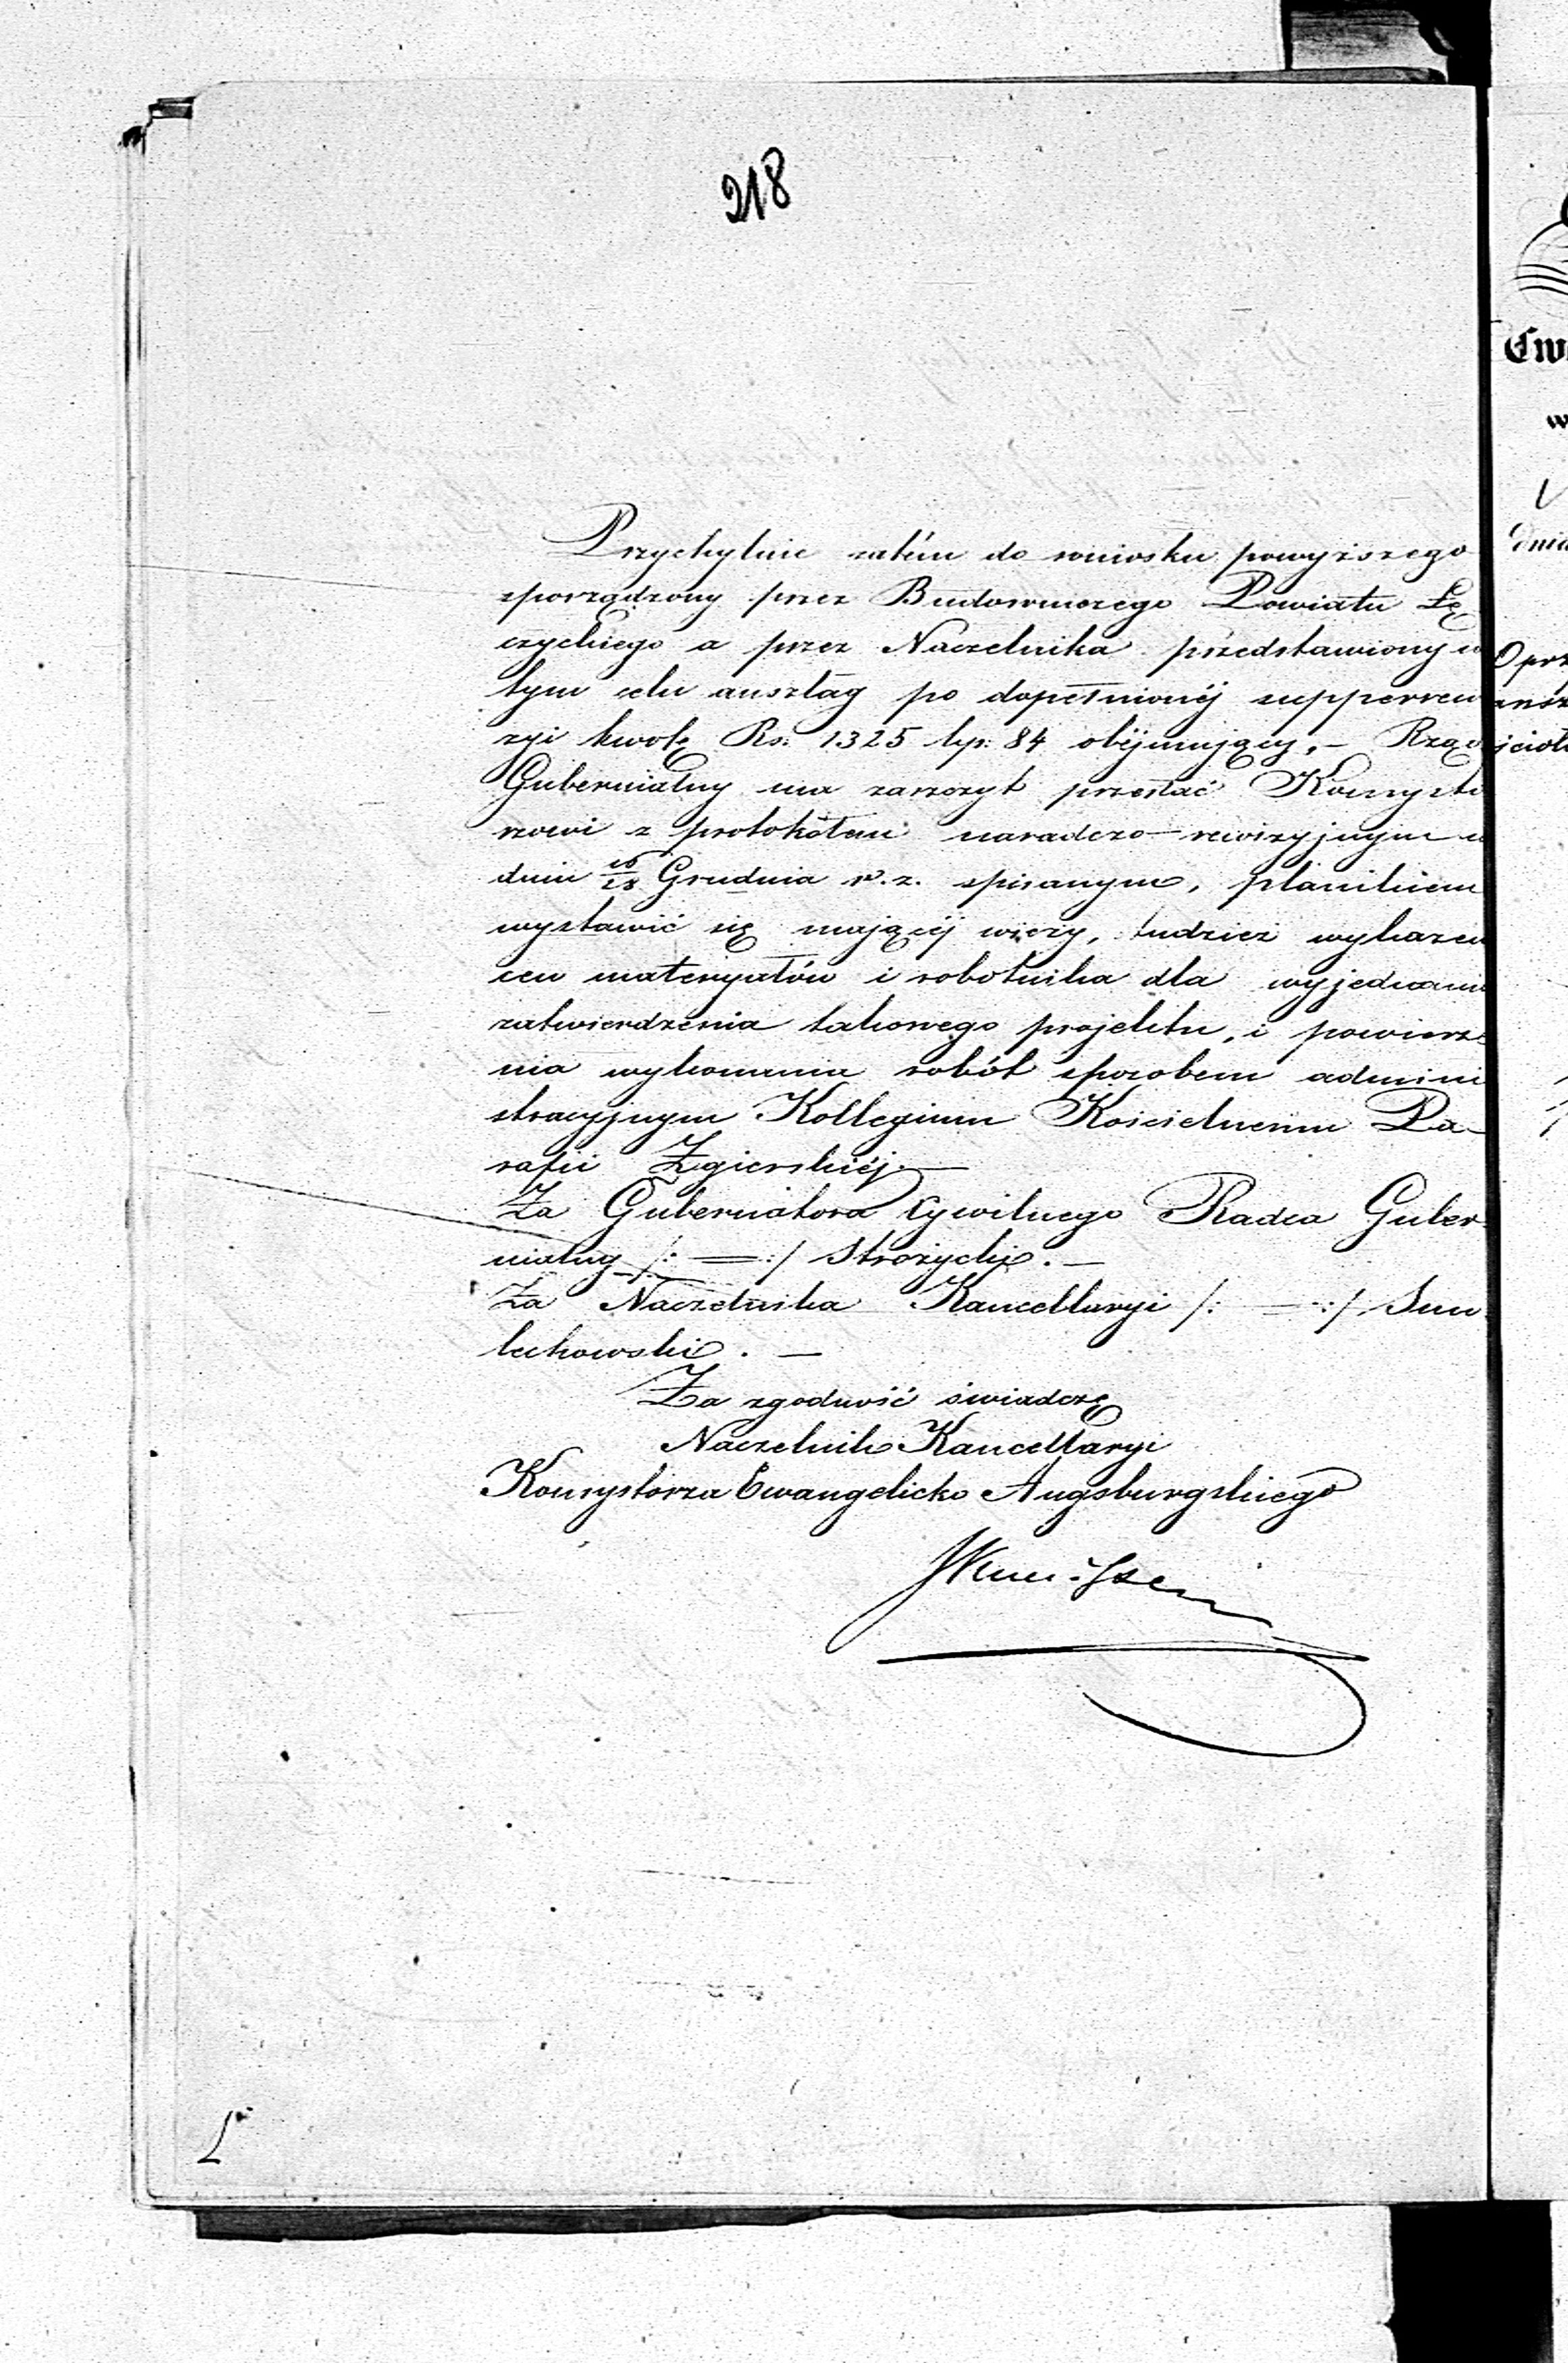 218
Przychylnie zatém do wniosku powyższego
sporządzony przez Budowniczego Powiatu Łę
czyckiego a przez Naczelnika przedstawiony w
tym celu anszlag po dopełnionéj supperrewi
zyi kwotę Rs: 1325 kp: 84 obéjmujący, — Rząd
Gubernialny ma zaszczyt przesłać Konsysto
rzowi z protokółem naradczo-rewizyjnym w
dniu 16/28 Grudnia r. z. spisanym, planikiem
wystawić się mającéj wieży, tudzież wykazem
cen materyałów i robotnika dla wyjednania
zatwierdzenia takowego projektu, i powierze
nia wykonania robót sposobem admini
stracyjnym Kollegium Kościelnemu Pa-
rafii Zgierskiéj. —
Za Gubernatora Cywilnego Radca Guber
nialny /: = :/ Strożycki. —
Za Naczelnika Kancellaryi /: = :/ Smo
lechowski. —
Za zgodność świadczę
Naczelnik Kancellaryi
Konsystorza Ewangelicko Augsburgskiego